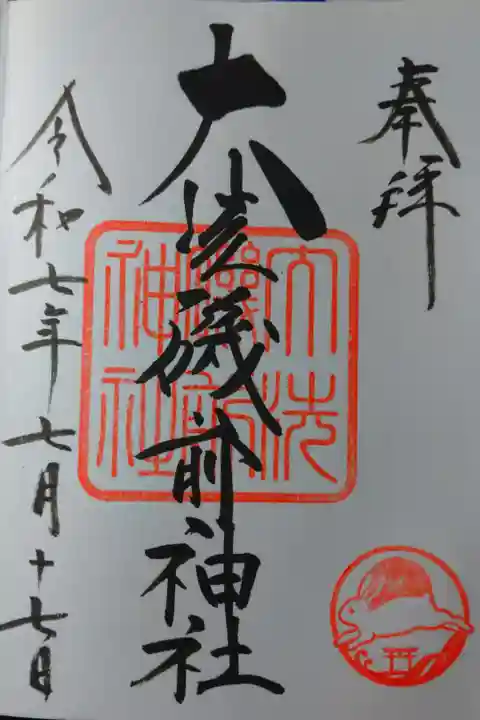 奉拝
大洗磯前神社
大洗
磯前
神社
令和七年七月十七日